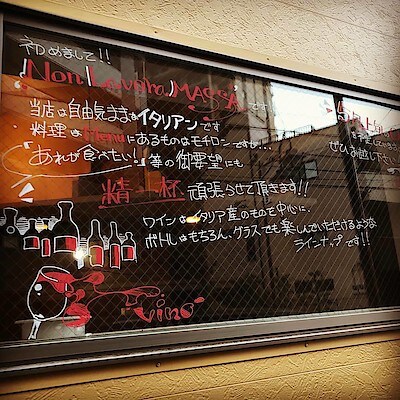 初めまして!!
Non です
当店は自由気ままなイタリアンです
料理はMenuにあるものはモチロンですが…
「あれが食べたい!」等の御要望にも
精一杯頑張らせて頂きます!!
ワインはイタリア産のものを中心に、
ボトルはもちろん、グラスでも楽しんでいただけるような
ラインナップです!!
vino
ぜひお越し下さい